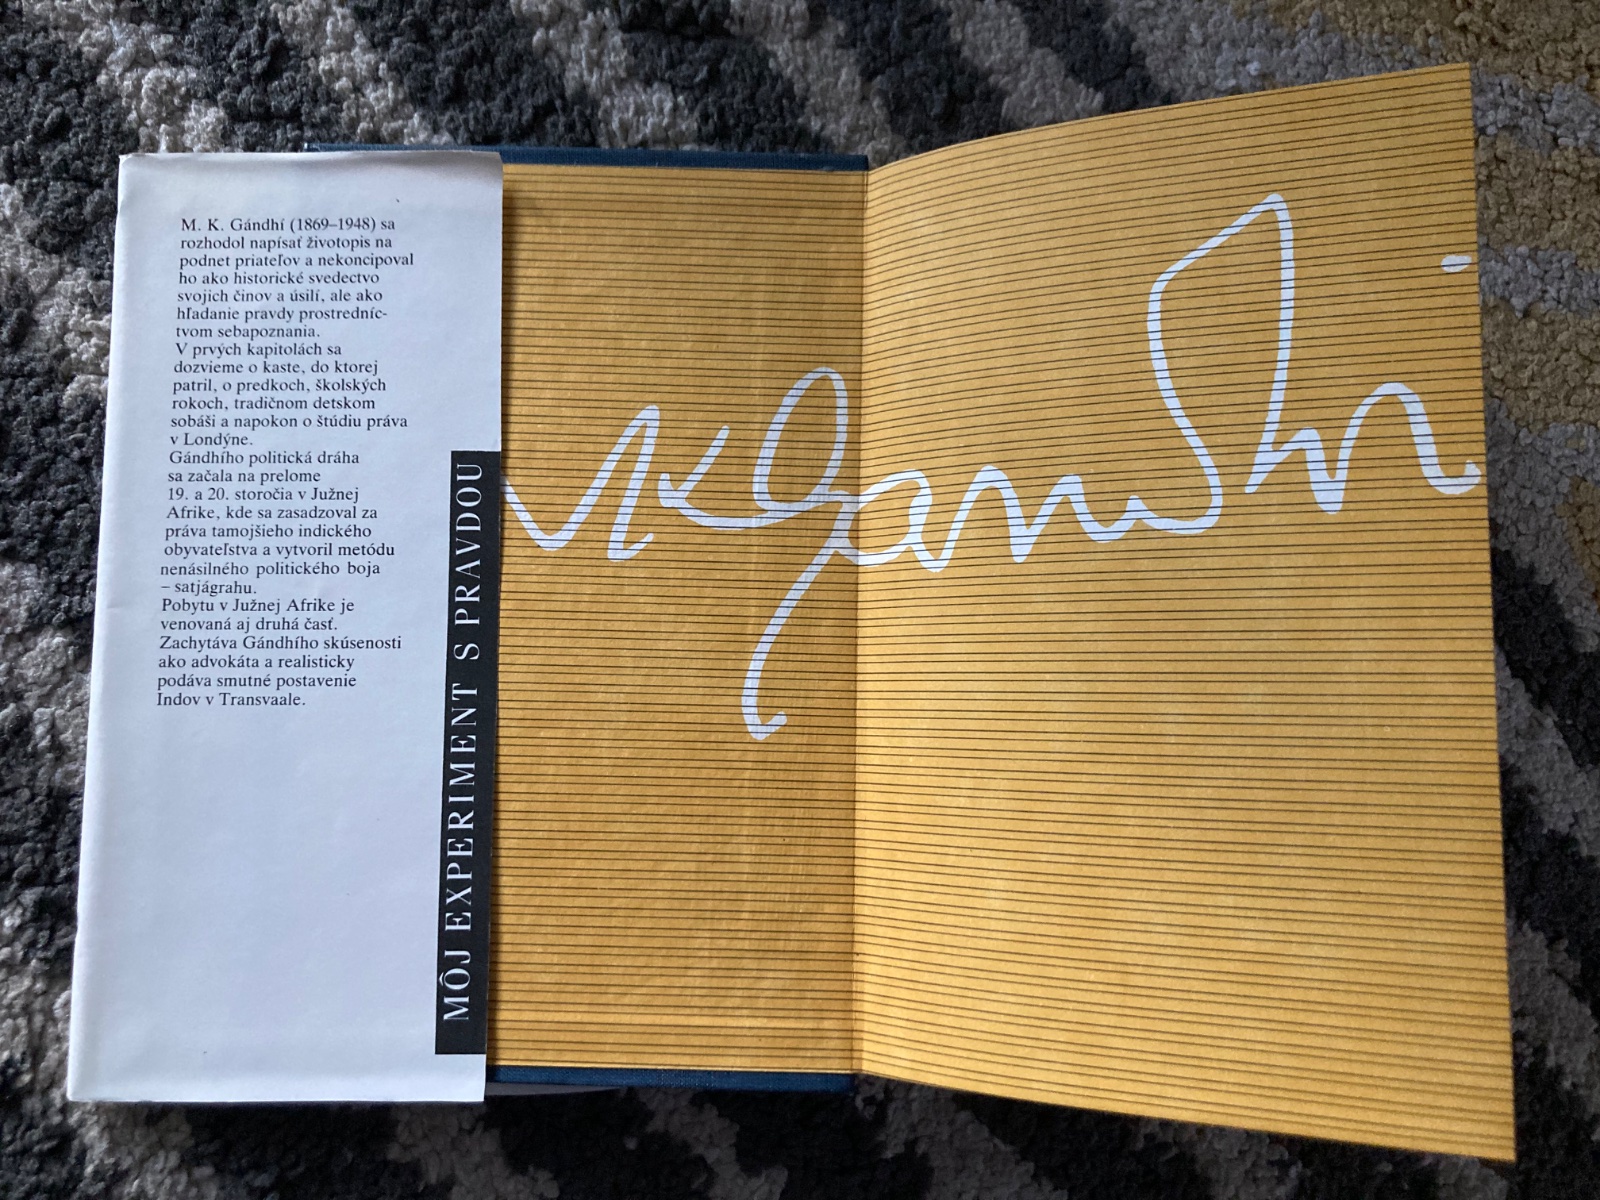 M. K. Gándhí (1869–1948) sa
rozhodol napísať životopis na
podnet priateľov a nekoncipoval
ho ako historické svedectvo
svojich činov a úsilí, ale ako
hľadanie pravdy prostredníc-
tvom sebapoznania.
V prvých kapitolách sa
dozvieme o kaste, do ktorej
patril, o predkoch, školských
rokoch, tradičnom detskom
sobáši a napokon o štúdiu práva
v Londýne.
Gándhího politická dráha
sa začala na prelome
19. a 20. storočia v Južnej
Afrike, kde sa zasadzoval za
práva tamojšieho indického
obyvateľstva a vytvoril metódu
nenásilného politického boja
– satjágrahu.
Pobytu v Južnej Afrike je
venovaná aj druhá časť.
Zachytáva Gándhího skúsenosti
ako advokáta a realisticky
podáva smutné postavenie
Indov v Transvaale.
MÔJ EXPERIMENT S PRAVDOU
MKGandhi